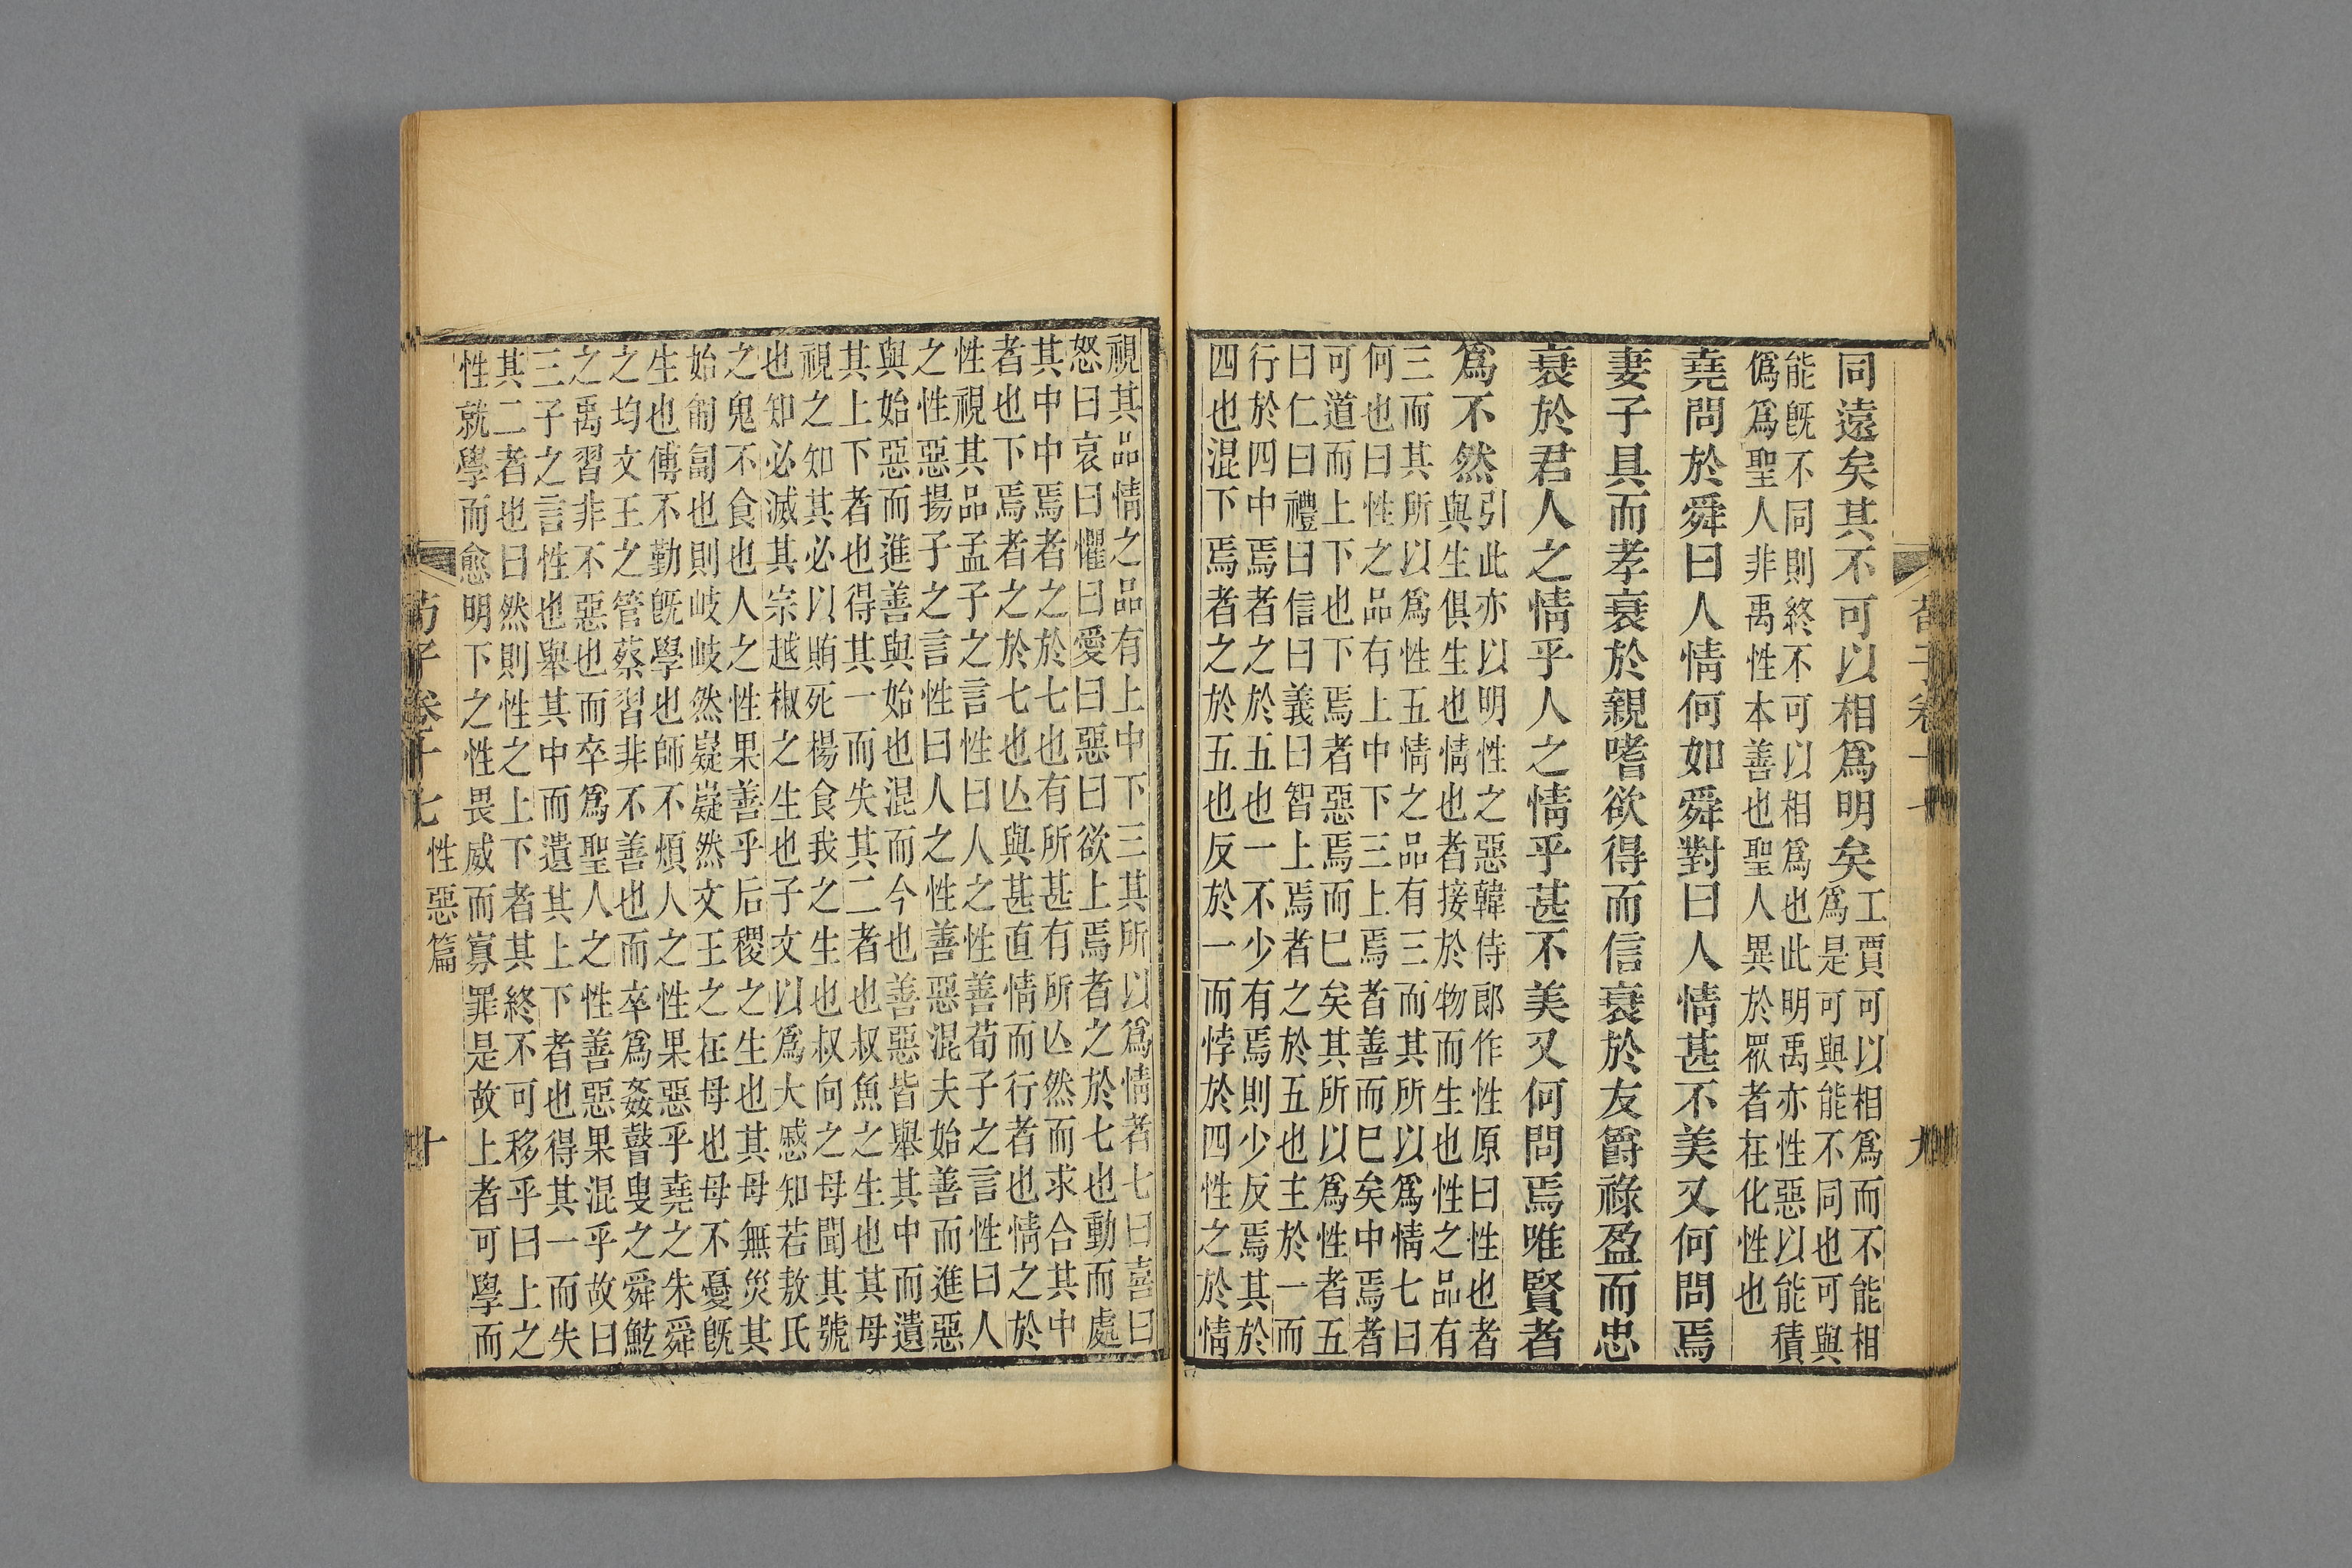 同遠矣其不可以相爲明矣
工賈可以相爲而不能相
爲是可與能不同也可與
能旣不同則終不可以相爲也此明禹亦性惡以能積
僞爲聖人非禹性本善也聖人異於眾者在化性也
堯問於舜曰人情何如舜對曰人情甚不美又何問焉
妻子具而孝衰於親嗜欲得而信衰於友爵祿盈而忠
衰於君人之情乎人之情乎甚不美又何問焉唯賢者
爲不然
引此亦以明性之惡韓侍郎作性原曰性也者
與生俱生也情也者接於物而生也性之品有
三而其所以爲性五情之品有三而其所以爲情七曰
何也曰性之品有上中下三上焉者善而巳矣中焉者
可道而上下也下焉者惡焉而巳矣其所以爲性者五
曰仁曰禮曰信曰義曰智上焉者之於五也主於一而
行於四中焉者之於五也一不少有焉則少反焉其於
四也混下焉者之於五也反於一而悖於四性之於情
荀子卷十
九
視其品情之品有上中下三其所以爲情者七曰喜曰
怒曰哀曰懼曰愛曰惡曰欲上焉者之於七也動而處
其中中焉者之於七也有所甚有所亾然而求合其中
者也下焉者之於七也亾與甚直情而行者也情之於
性視其品孟子之言性曰人之性善荀子之言性曰人
之性惡揚子之言性曰人之性善惡混夫始善而進惡
與始惡而進善與始也混而今也善惡皆舉其中而遺
其上下者也得其一而失其二者也叔魚之生也其母
視之知其必以賄死楊食我之生也叔向之母聞其號
也知必滅其宗越椒之生也子文以爲大慼知若敖氏
之鬼不食也人之性果善乎后稷之生也其母無災其
始匍匐也則岐岐然嶷嶷然文王之在母也母不憂旣
生也傅不勤旣學也師不煩人之性果惡乎堯之朱舜
之均文王之管蔡習非不善也而卒爲姦瞽叟之舜鮌
之禹習非不惡也而卒爲聖人之性善惡果混乎故曰
三子之言性也舉其中而遺其上下者也得其一而失
其二者也曰然則性之上下者其終不可移乎曰上之
性就學而愈明下之性畏威而寡罪是故上者可學而
荀子卷十七
性惡篇
十